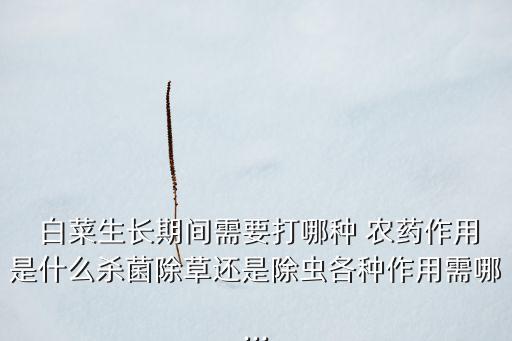 白菜生长期间需要打哪种 农药作用
是什么杀菌除草还是除虫各种作用需哪
...